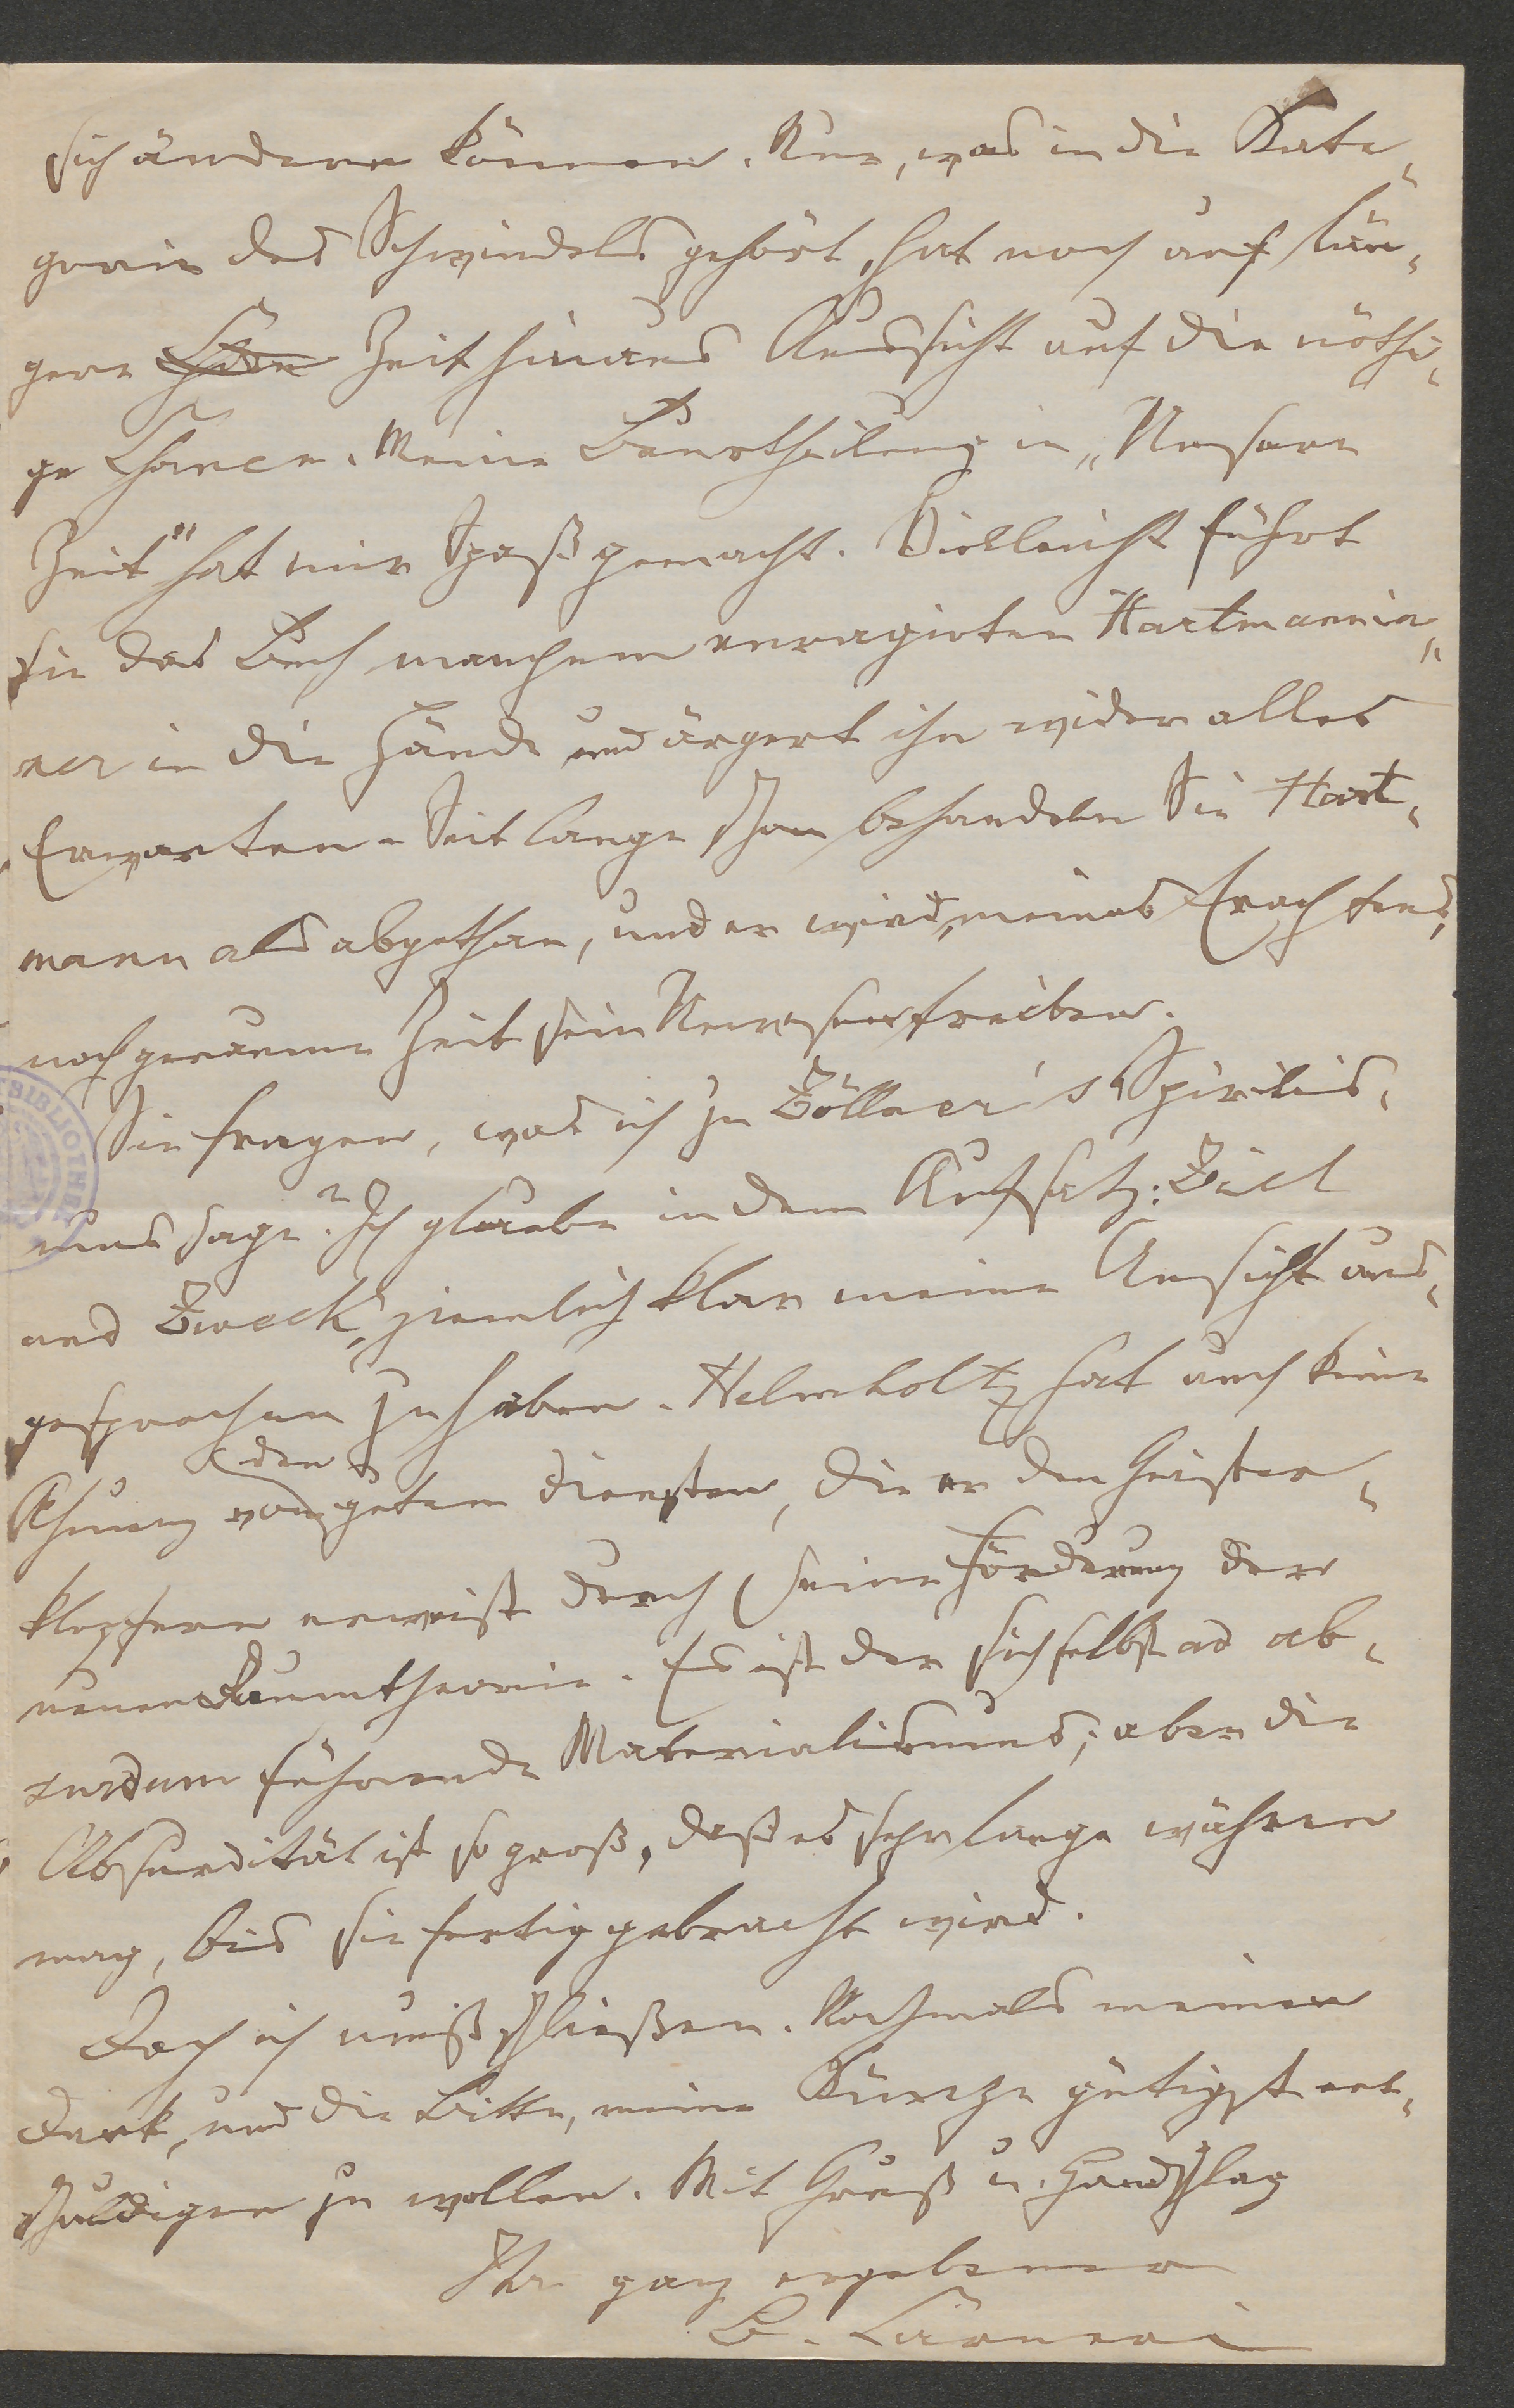 sich ändern können. Nur, was in die Kate-
gorie des Schwindels gehört, hat noch auf län-
gere Zeit hinaus Aussicht auf die nöthi-
ge Chance. Meine Beurtheilung in „Unsere
Zeit" hat mir Spaß gemacht. Vielleicht führt
sie das Buch manchem enragirten Hartmannia-
ner in die Hände und ärgert ihn wider alles
Erwarten. Seit lange schon behandeln Sie Hart-
mann als abgethan, und er wird, meines Erachtens,
noch geraume Zeit sein Unwesen treiben.
Sie fragen, was ich zu Zöllner's Spiritis-
mus sage? Ich glaube in dem Aufsatz: Ziel
und Zweck, ziemlich klar meine Ansicht aus-
gesprochen zu haben. Helmholtz hat auch keine
Ahnung von den guten Diensten, die er den Geister-
klopfern erweist durch seine Förderung der
neuen Raumtheorie. Es ist der sich selbst ad ab-
surdum führende Materialismus; aber die
Absurdität ist so groß, daß es sehr lange währen
mag, bis sie fertig gebracht wird.
Doch ich muß schließen. Nochmals meinen
Dank, und die Bitte, meine Kürze gütigst ent-
schuldigen zu wollen. Mit Gruß u. Handschlag
Ihr ganz ergebener
B. Carneri